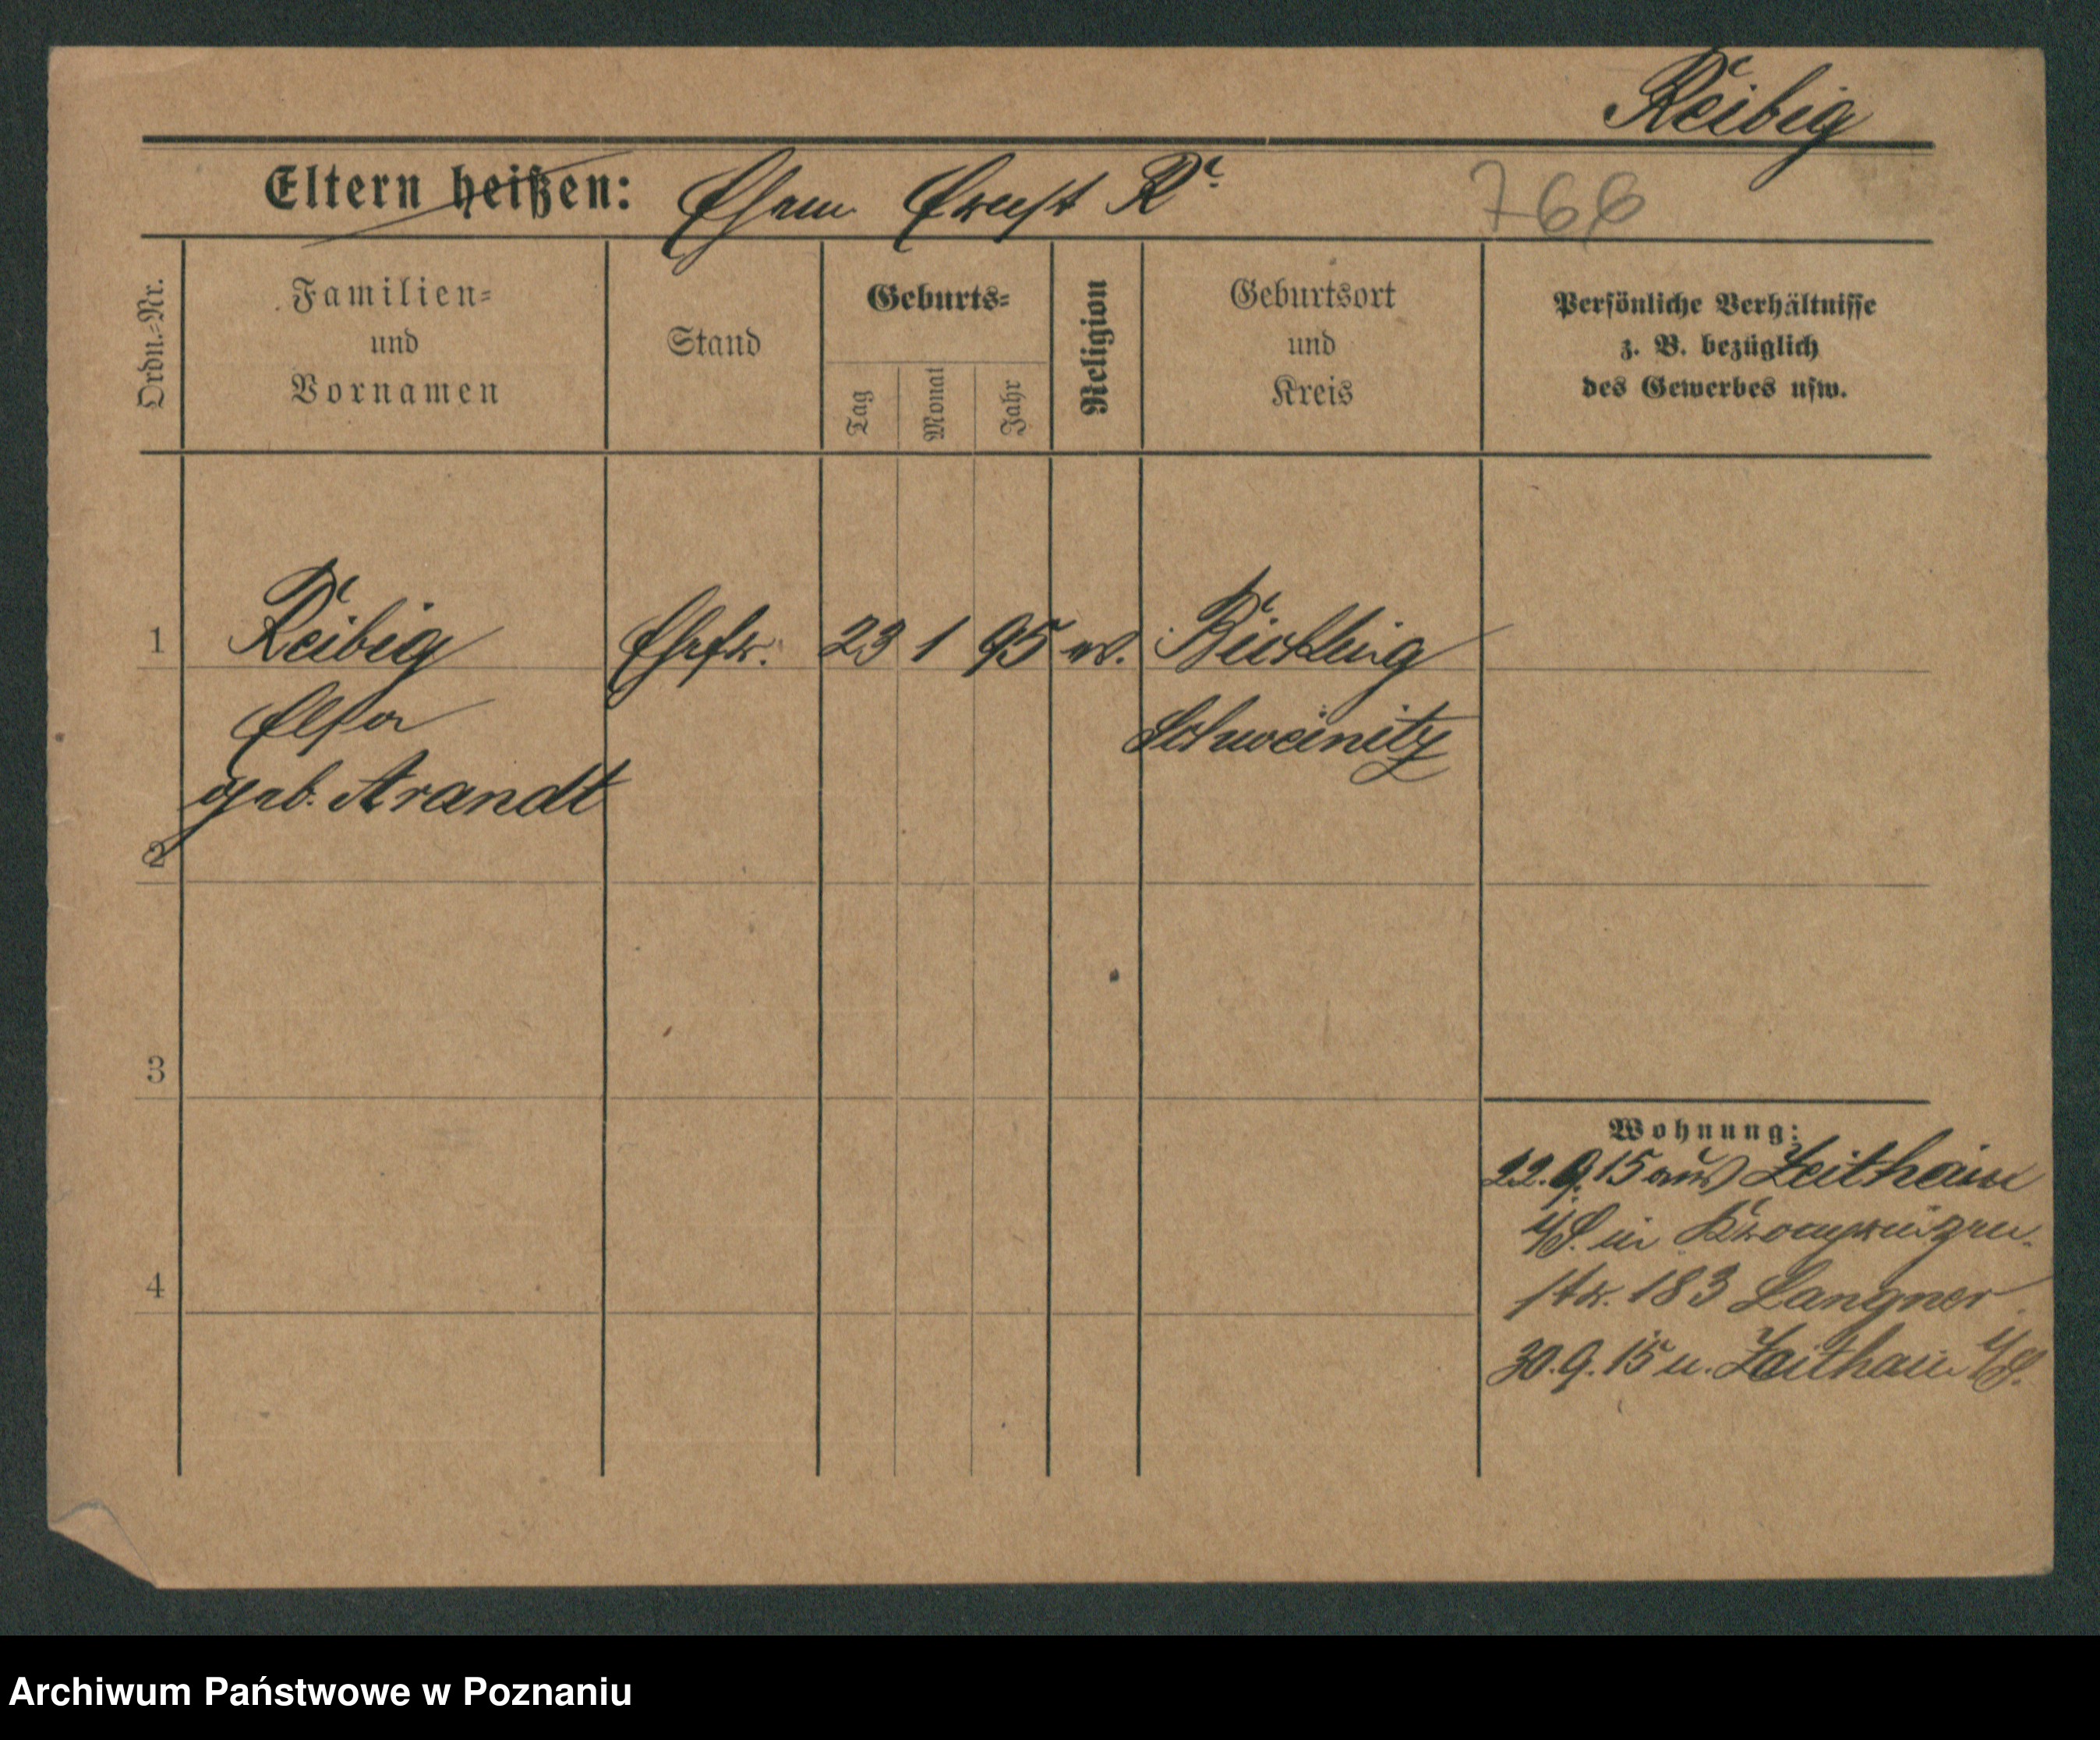 Reibig
Eltern heißen: Ehem Ernst R.
766
Ordn.-Nr.
Familien-
und
Vornamen
Stand
Geburts-
Tag
Monat
Jahr
Religion
Geburtsort
und
Kreis
Persönliche Verhältnisse
z. B. bezüglich
des Gewerbes usw.
1 Reibig Ehefr. 23 1 95 ev.
Elsa Schweinitz
geb. Arandt
2
3
4
Wohnung:
22.9.15 aus Zeithain
i/S. in Kronprinzen-
str. 183 Langner
30.9.15 n. Zeithain i/S.
Archiwum Państwowe w Poznaniu